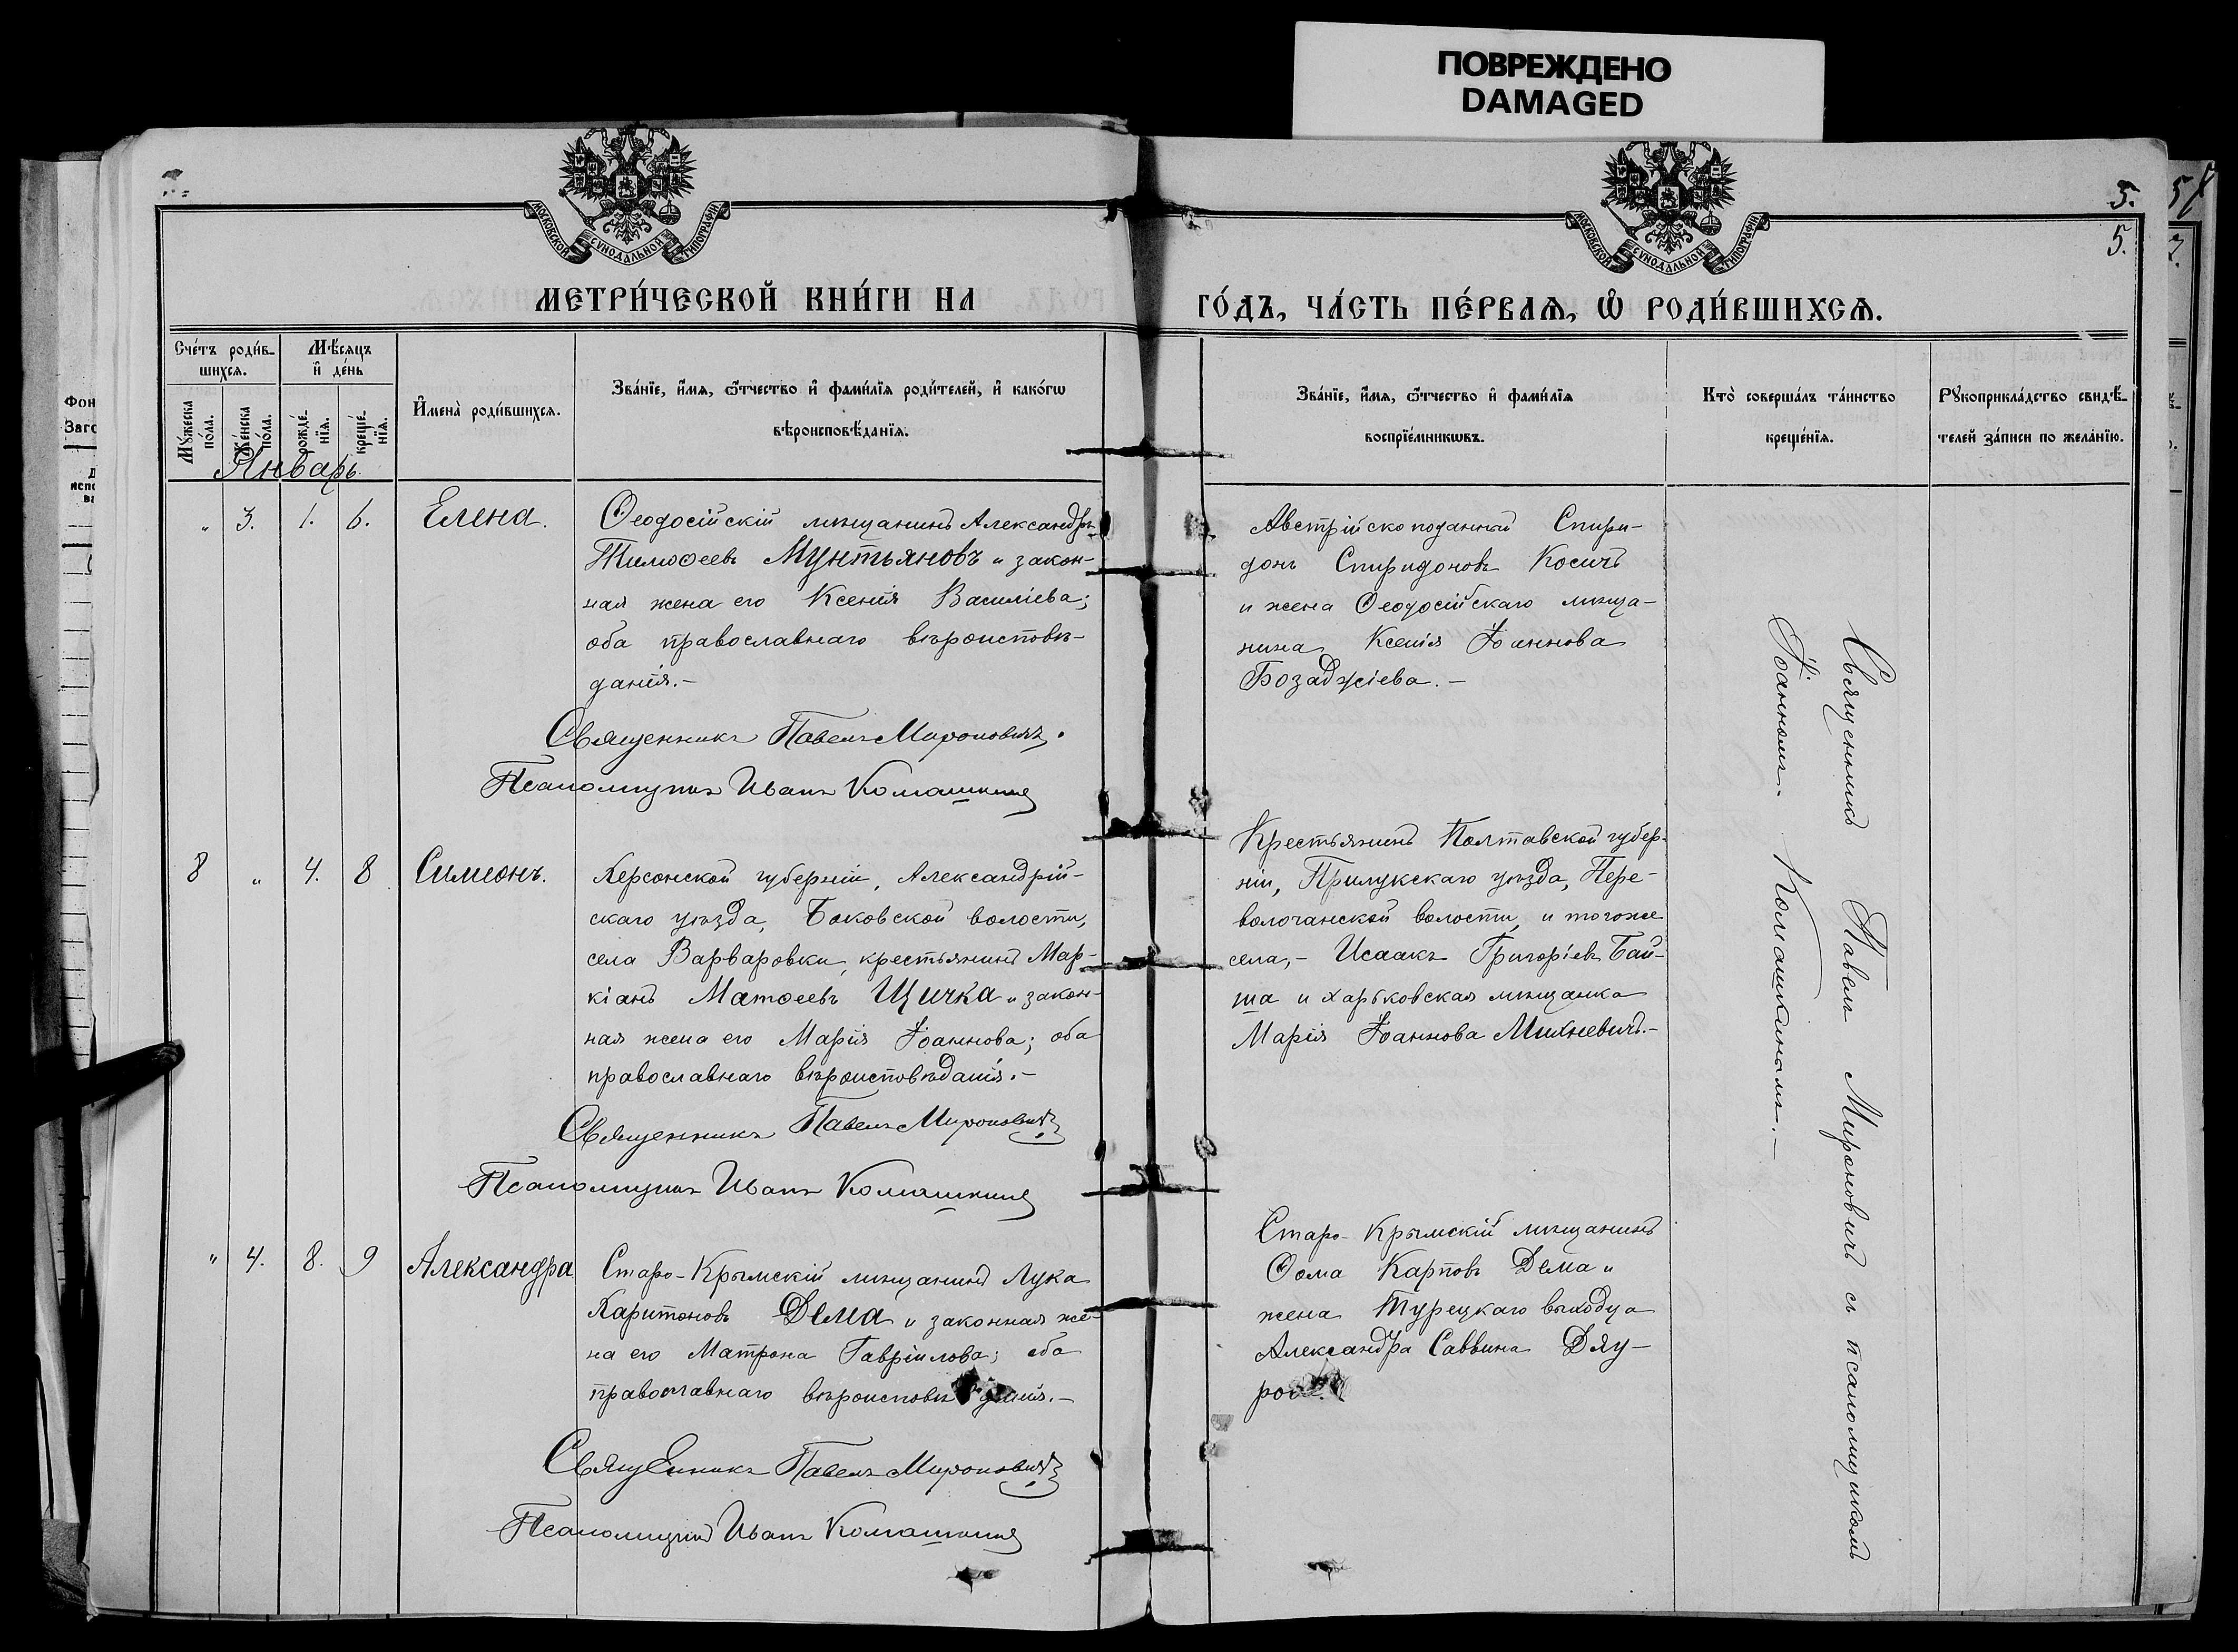 ПОВРЕЖДЕНО
DAMAGED
МОСКОВСКОЙ СѴНОДАЛЬНОЙ ТИПОГРАФІИ
МОСКОВСКОЙ СѴНОДАЛЬНОЙ ТИПОГРАФІИ
5.
5.
МЕТРИ́ЧЕСКОЙ КНИ́ГИ НА
ГО́ДЪ, ЧА́СТЬ ПЕ́РВАѦ, Ѡ҆ РОДИ́ВШИХСѦ.
Сче́тъ роди́в-
шихсѧ.
Мѣ́сѧцъ
и҆ де́нь
Мꙋ́жеска
по́ла.
Же́нска
по́ла.
рожде́-
нїѧ.
креще́-
нїѧ.
И҆мена̀ роди́вшихсѧ.
Зва́нїе, и҆́мѧ, ѻ҆́тчество и҆ фами́лїѧ роди́телей, и҆ како́гѡ
вѣроисповѣ́данїѧ.
Зва́нїе, и҆́мѧ, ѻ҆́тчество и҆ фами́лїѧ
воспрїе́мникѡвъ.
Кто̀ соверша́лъ та́инство
креще́нїѧ.
Рꙋкоприкла́дство свидѣ́-
телей за́писи по жела́нїю.
Январь
„ 3. 1. 6. Елена.
Ѳеодосійскій мѣщанинъ Александръ
Тимоѳеевъ Мунтьяновъ и закон-
ная жена его Ксенія Василіева;
оба православнаго вѣроисповѣ-
данія.–
Священникъ Павелъ Мироновичъ.
Псаломщикъ Иванъ Комашкинъ
Австрійскоподанный Спири-
донъ Спиридоновъ Косичъ
и жена Ѳеодосійскаго мѣща-
нина Ксенія Іоаннова
Бозаджіева.–
8 „ 4. 8 Симеонъ.
Херсонской губерніи, Александрій-
скаго уѣзда, Боковской волости,
села Варваровки, крестьянинъ Мар-
кіанъ Матѳеевъ Щичка и закон-
ная жена его Марія Іоаннова; оба
православнаго вѣроисповѣданія.–
Священникъ Павелъ Мироновичъ
Псаломщикъ Иванъ Комашкинъ
Крестьянинъ Полтавской губер-
ніи, Прилукскаго уѣзда, Пере-
волочанской волости, и тогоже
села,– Исаакъ Григоріевъ Бай-
ша и харьковская мѣщанка
Марія Іоаннова Михневичъ.–
„ 4. 8. 9 Александра
Старо-Крымскій мѣщанинъ Лука
Харитоновъ Дема и законная же-
на его Матрона Гавріилова; оба
православнаго вѣроисповѣданія.–
Священникъ Павелъ Мироновичъ
Псаломщикъ Иванъ Комашкинъ
Старо-Крымскій мѣщанинъ
Ѳома Карповъ Дема и
жена Турецкаго выходца
Александра Саввина Дяу-
Священникъ Павелъ Мироновичъ съ псаломщикомъ
Іоанномъ Комашкинымъ.–